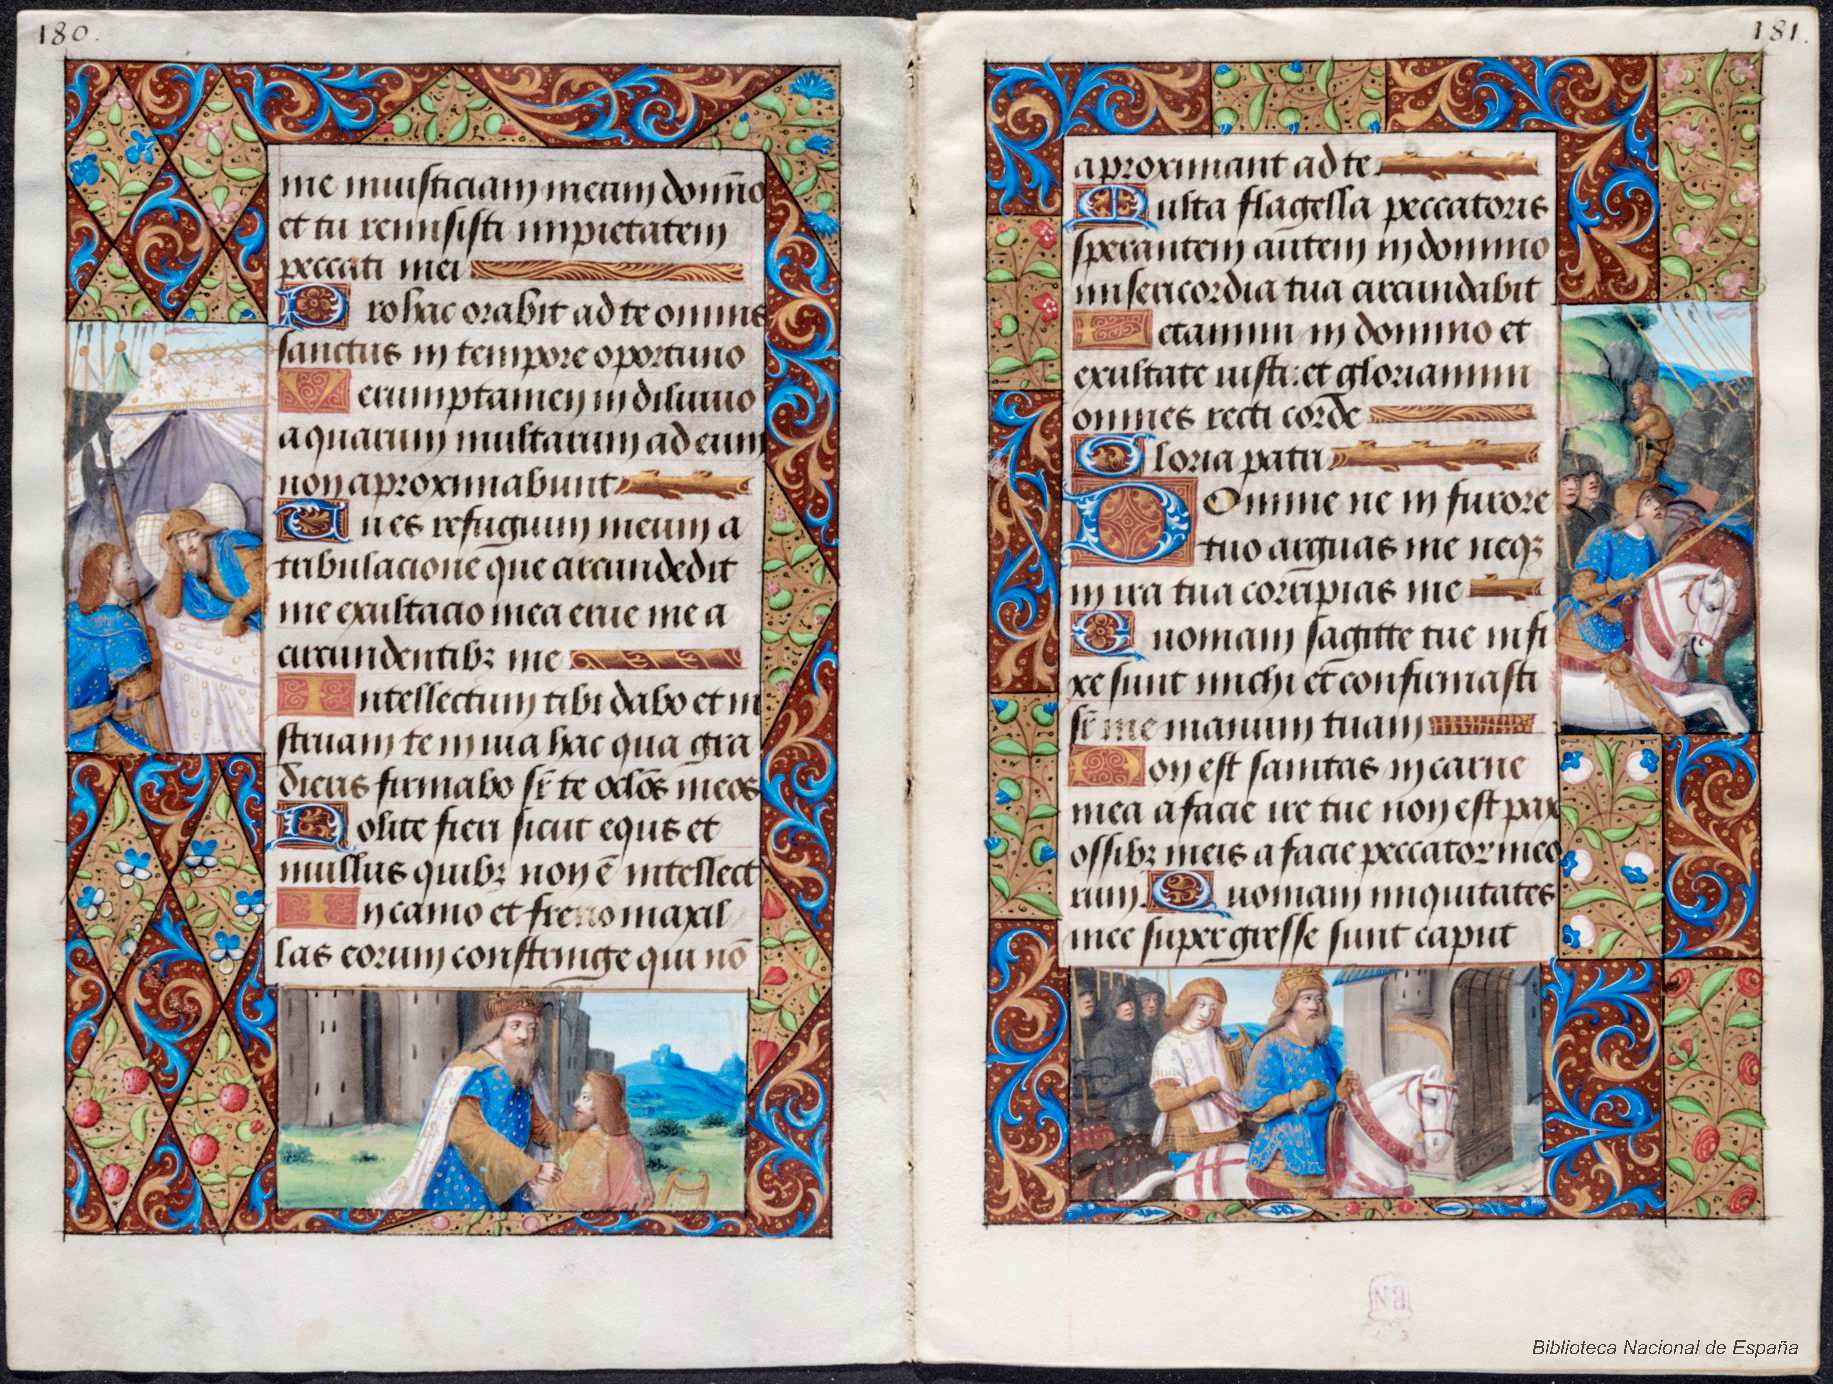 180.
me iniusticiam meam domīo
et tu remisisti impietatem
peccati mei
Pro hac orabit ad te omnis
sanctus in tempore oportuno
Verumptamen in diluuio
aquarum multarum ad eum
non aproximabunt
Tu es refugium meum a
tribulacione que circundedit
me exultacio mea erue me a
circundentibꝫ me
Intellectum tibi dabo et in
struam te in uia hac qua gra
dieris firmabo sr̄ te oclōs meos
Nolite fieri sicut equs et
mullus quibꝫ non ē intellect
In camo et freno maxil
las eorum constringe qui nō
181.
aproximant ad te
Multa flagella peccatoris
sperantem autem in domino
misericordia tua circundabit
Letamini in domino et
exultate iusti: et gloriamini
omnes recti corde
Gloria patri
Domine ne in furore
tuo arguas me neqꝫ
in ira tua corripias me
Quoniam sagitte tue infi
xe sunt michi et confirmasti
sr̄ me manum tuam
Non est sanitas in carne
mea a facie ire tue non est pax
ossibꝫ meis a facie peccatoꝝ meo
rum. Quoniam iniquitates
mee supergresse sunt caput
BN
Biblioteca Nacional de España